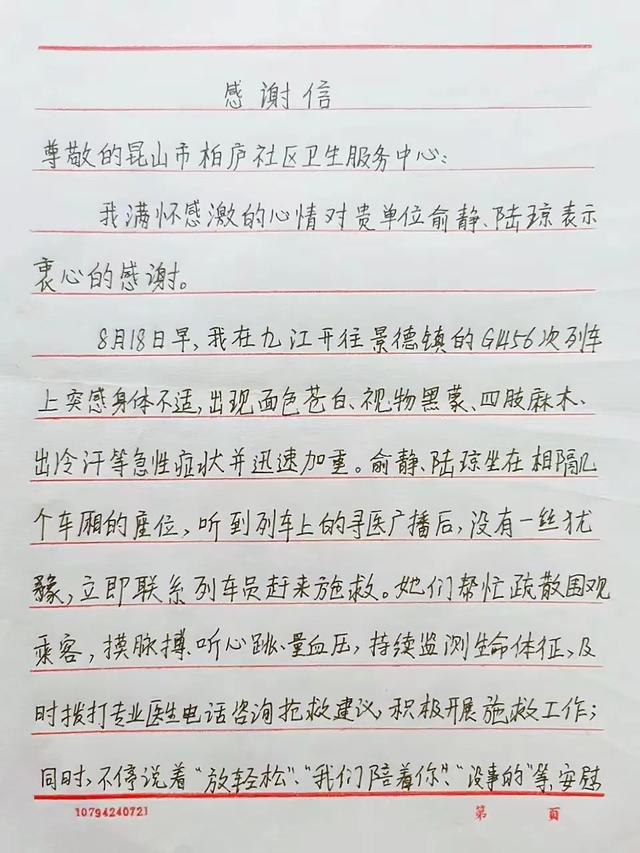 感谢信
尊敬的昆山市柏庐社区卫生服务中心:
我满怀感激的心情对贵单位俞静、陆琼表示
衷心的感谢。
8月18日早,我在九江开往景德镇的G1456次列车
上突感身体不适,出现面色苍白、视物黑蒙、四肢麻木、
出冷汗等急性症状并迅速加重。俞静、陆琼坐在相隔几
个车厢的座位,听到列车上的寻医广播后,没有一丝犹
豫,立即联系列车员赶来施救。她们帮忙疏散围观
乘客,摸脉搏、听心跳、量血压,持续监测生命体征,及
时拨打专业医生电话咨询抢救建议,积极开展施救工作;
同时,不停说着"放轻松"、"我们陪着你"、"没事的"等,安慰
10794240721
第 頁